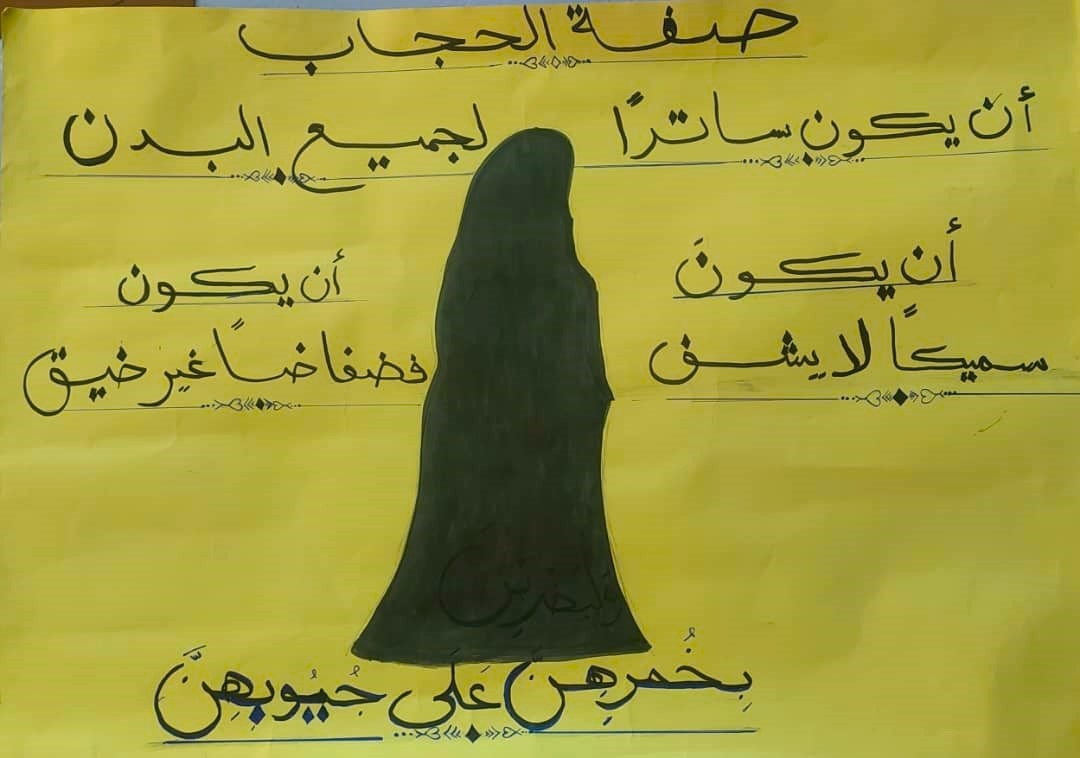 صفة الحجاب
أن يكون ساترًا لجميع البدن
أن يكونَ
سميكًا لا يشف
أن يكون
فضفاضًا غير ضيق
وَليَضرِبنَ
بِخُمرِهِنَّ عَلَى جُيُوبِهِنَّ